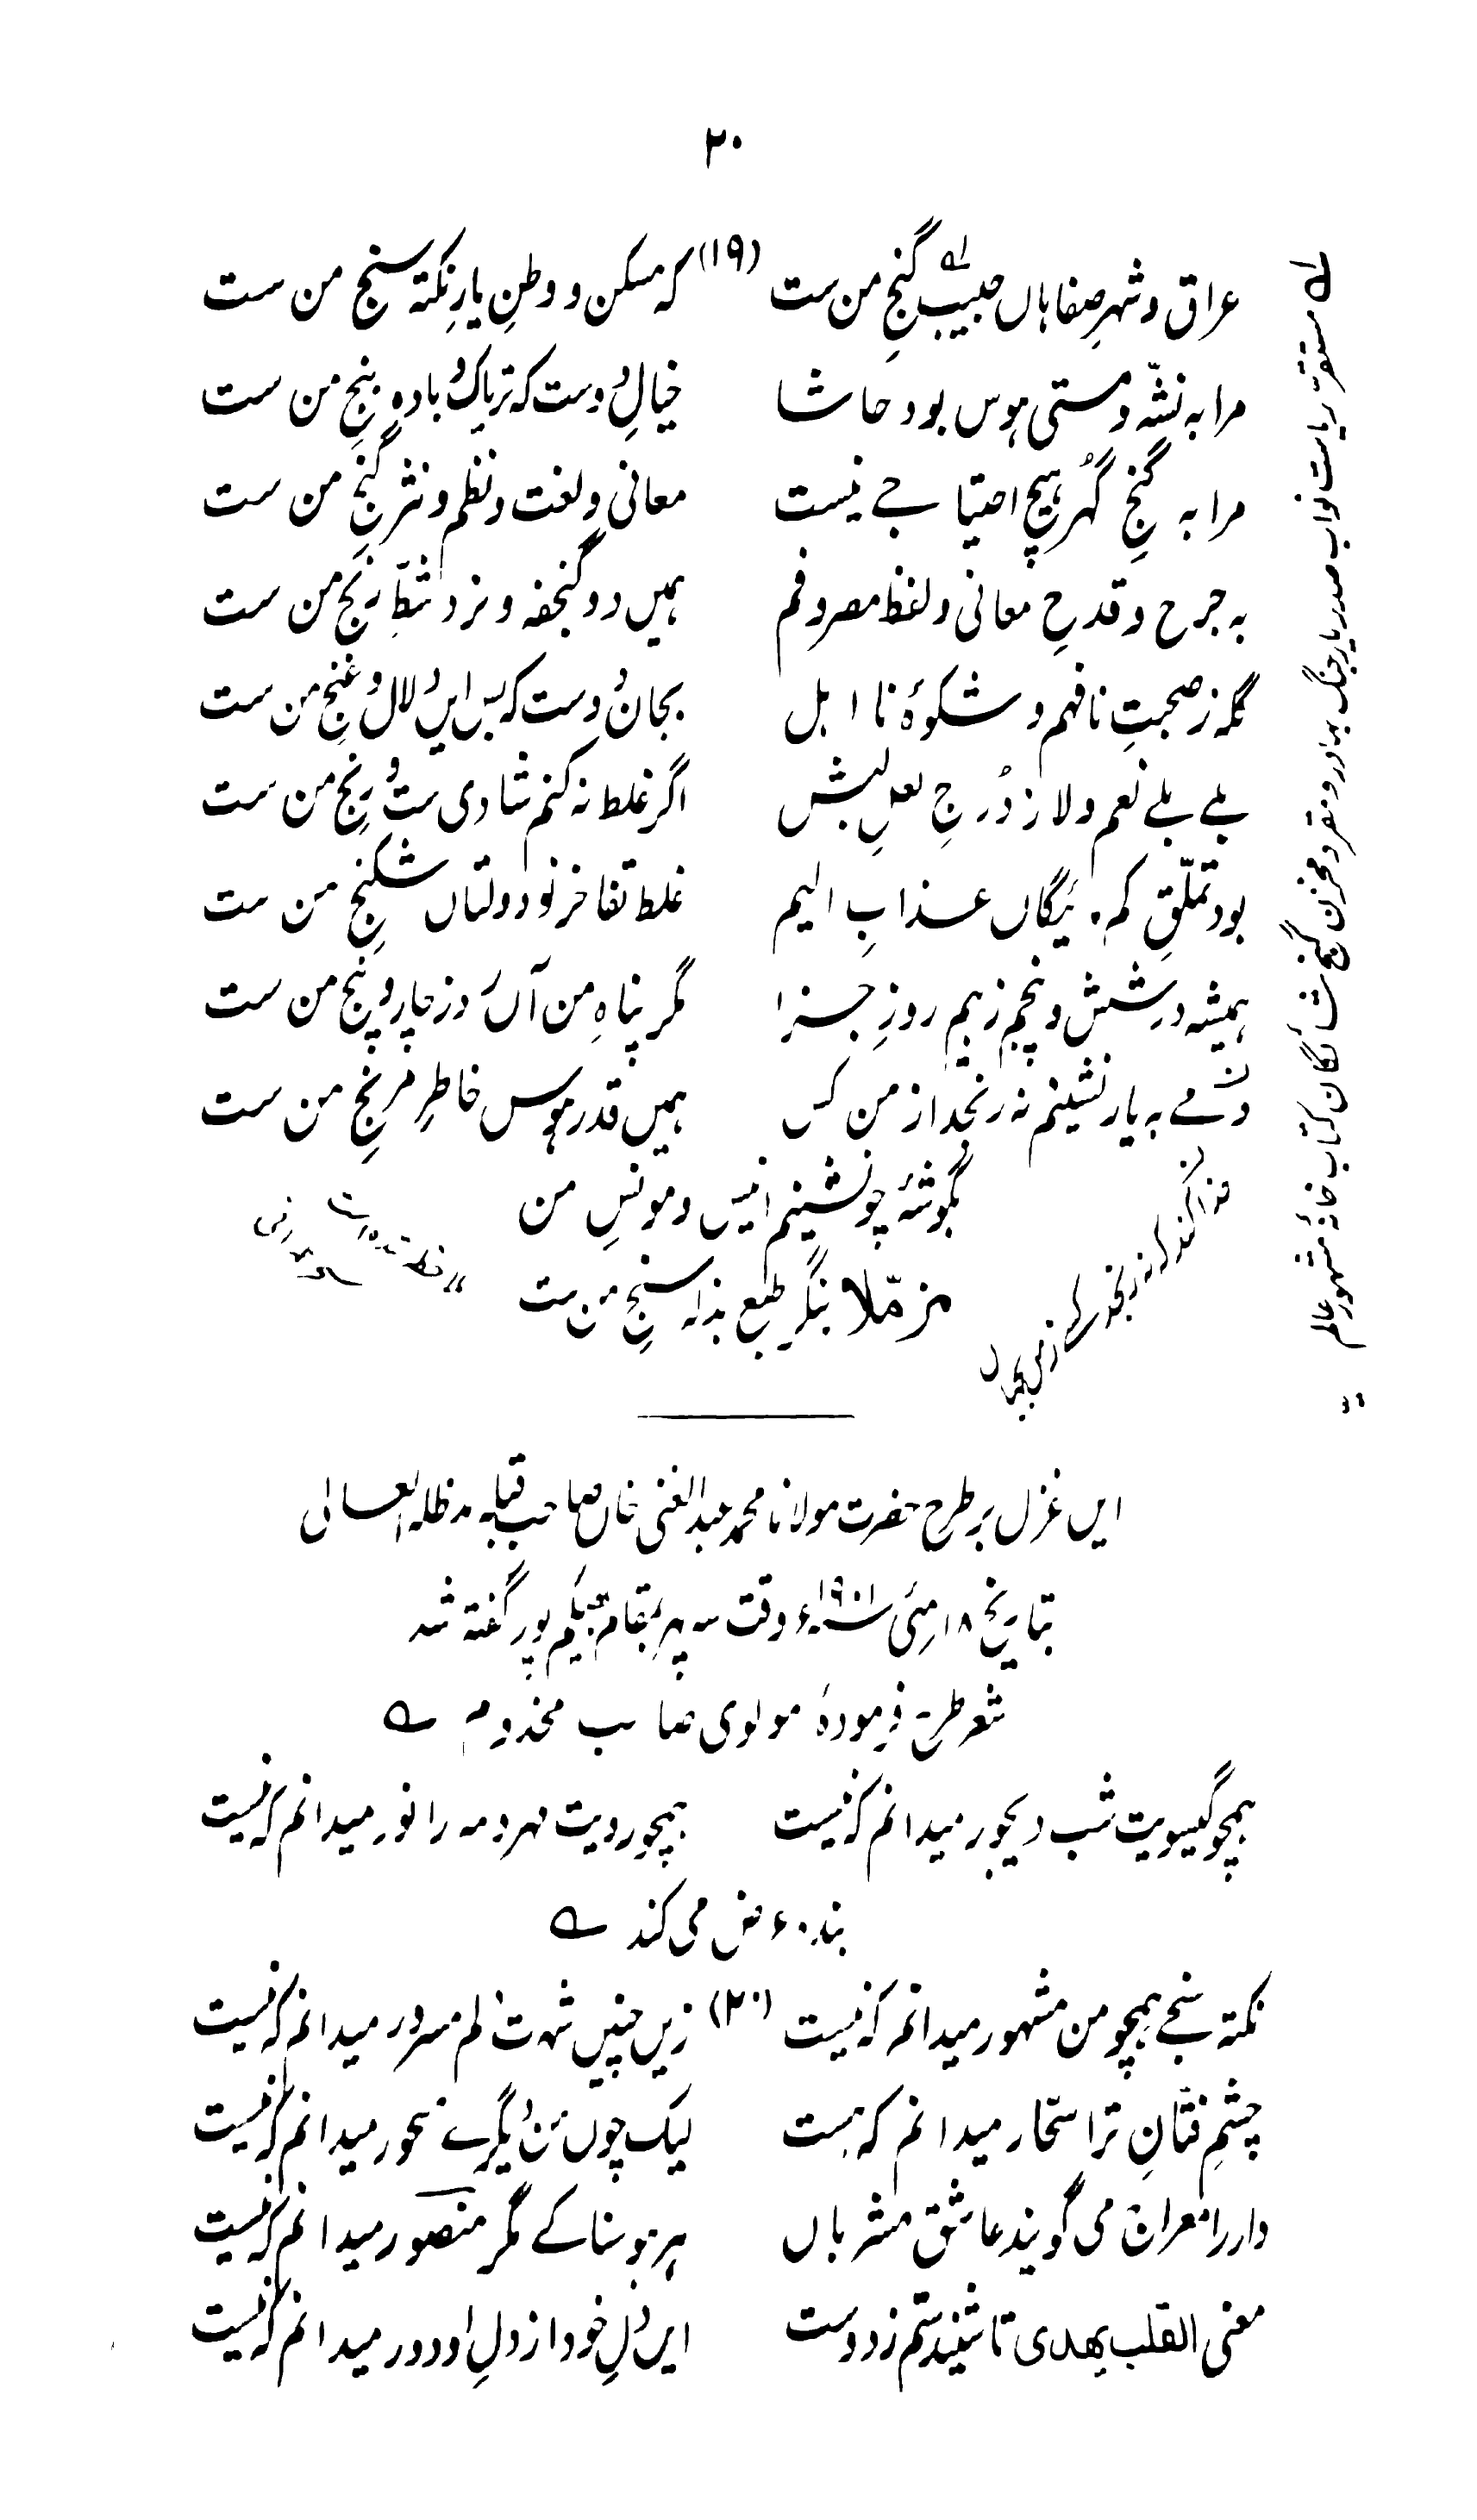 ۲۰
عراق و شہرِ صفاہاں حبیب گنجِ من ست (۱۹) کہ مسکن و وطنِ یارِ نکتہ سنجِ من ست
مرا بہ نشّہ و مستی ہوس بود حاشا خیالِ دوست کہ تریاک و بادہ و بنجِ من ست
مرا بہ گنجِ گہر ہیچ احتیاجے نیست معانی و لغت و نظم و نثر گنجِ من ست
بہ جرح و قدحِ معانی و لفظ مصروفم ہمیں دو گنجفہ و نرد و شطرنجِ من ست
گلہ ز صحبتِ نافہم و شکوۂ نا اہل بجانِ دوست کہ بس ایں دلال و غنجِ من ست
بلے بلے نعم و لا ز دُرجِ لعلِ لبش اگر غلط نہ کنم شادی ست و رنجِ من ست
بود تملّقِ کم پایگاں عذابِ الیم غلط تفاخرِ نو دولتاں شکنجِ من ست
ہمیشہ در شش و پنجم ز بیمِ روزِ جزا مگر پناہِ من آں روز چار و پنجِ من ست
دمے بہ یار نشینم نہ رنجد از من کس ہمیں قدر ہوسِ خاطرِ مرنجِ من ست
بگوشۂ چو نشینم انیس و مونسِ من
مزمّلا بنگر طبع بذلہ سنجِ من ست
لہ مستقر ریاست نواب صدر یار جنگ بہادر و مقر و مخزن گنج شائگان کتاب خانۂ مشہور عالم ۱۲
ایں غزل بر طرح حضرت مولانا محمد عبدالغنی خاں صاحب قبلہ مدظلہ العالی
بتاریخ ۱۸ مئی ۱۹۰۱ء وقت سہ پہر بمقام بھیکم پور گفتہ شد
شعر طرح فرمودۂ مولوی صاحب مخدوم ؎
ہمچو گیسویت شب دیجور میدانم کہ نیست ہمچو رویت مہر و مہ را نور میدانم کہ نیست
بندہ عرض می کند ؎
نکتہ سنجے ہمچو من مشہور میدانم کہ نیست (۲۰) زیں چنیں شہرت دلم مسرور میدانم کہ نیست
چشمِ فتّانِ ترا سحّار میدانم کہ ہست لیک چوں من دیگرے مسحور میدانم کہ نیست
دار را معراج می گویند عاشق مشرباں ہر ہوسناکے مگر منصور میدانم کہ نیست
معنی القلب یھدی تا شنیدستم ز دوست ایں دلِ خود از دلِ او دور میدانم کہ نیست